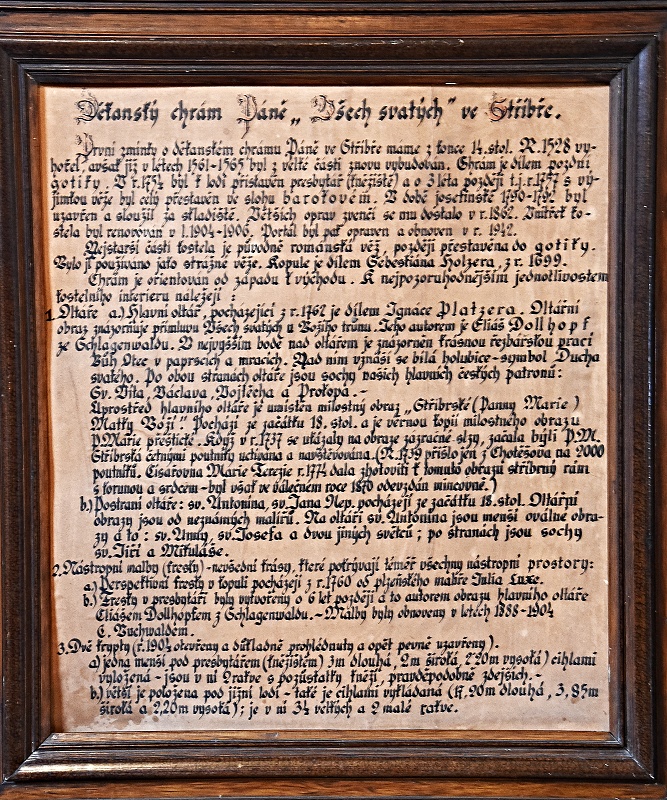 Děkanský chrám Páně „Všech svatých" ve Stříbře.
První zmínky o děkanském chrámu Páně ve Stříbře máme z konce 14. stol. R. 1528 vy-
hořel, avšak již v létech 1561-1565 byl z velké části znovu vybudován. Chrám je dílem pozdní
gotiky. V r. 1754 byl k lodi přistavěn presbytář (kněžiště) a o 3 léta později t.j. r. 1757 s vý-
jimkou věže byl celý přestavěn ve slohu barokovém. V době josefínské 1790-1792 byl
uzavřen a sloužil za skladiště. Větších oprav zvenčí se mu dostalo v r. 1862. Vnitřek ko-
stela byl renovován v l. 1904-1906. Portál byl pak opraven a obnoven v r. 1942.
Nejstarší částí kostela je původně románská věž, později přestavěná do gotiky.
Bylo jí používáno jako strážné věže. Kopule je dílem Šebestiána Holzera, z r. 1699.
Chrám je orientován od západu k východu. K nejpozoruhodnějším jednotlivostem
kostelního interieru náležejí :
1. Oltáře a.) Hlavní oltář, pocházející z r. 1762 je dílem Ignace Platzera. Oltářní
obraz znázorňuje přímluvu Všech svatých u Božího trůnu. Jeho autorem je Eliáš Dollhopf
ze Schlagenwaldu. V nejvyšším bodě nad oltářem je znázorněn krásnou řezbářskou prací
Bůh Otec v paprscích a mracích. Nad ním vznáší se bílá holubice - symbol Ducha
svatého. Po obou stranách oltáře jsou sochy našich hlavních českých patronů :
Sv. Víta, Václava, Vojtěcha a Prokopa. -
Uprostřed hlavního oltáře je umístěn milostný obraz „Stříbrské (Panny Marie)
Matky Boží." Pochází ze začátku 18. stol. a je věrnou kopií milostného obrazu
P. Marie přeštické. Když v r. 1737 se ukázaly na obraze zázračné slzy, začala býti P. M.
Stříbrská četnými poutníky uctívána a navštěvována. (R. 1739 přišlo jen z Chotěšova na 2000
poutníků. Císařovna Marie Terezie r. 1774 dala zhotoviti k tomuto obrazu stříbrný rám
s korunou a srdcem - byl však ve válečném roce 1810 odevzdán mincovně.)
b.) Postraní oltáře : sv. Antonína, sv. Jana Nep. pocházejí ze začátku 18. stol. Oltářní
obrazy jsou od neznámých malířů. Na oltáři sv. Antonína jsou menší oválné obra-
zy a to : sv. Anny, sv. Josefa a dvou jiných světců ; po stranách jsou sochy
sv. Jiří a Mikuláše.
2. Nástropní malby (fresky) - nevšední krásy, které pokrývají téměř všechny nástropní prostory :
a.) Perspektivní fresky v kopuli pocházejí z r. 1760 od plzeňského malíře Julia Luxe.
b.) Fresky v presbytáři byly vytvořeny o 6 let později a to autorem obrazu hlavního oltáře
Eliášem Dollhopfem z Schlagenwaldu. - Malby byly obnoveny v letech 1888-1904
C. Buchwaldem.
3. Dvě krypty (r. 1904 otevřeny a důkladně prohlédnuty a opět pevně uzavřeny).
a) jedna menší pod presbytářem (kněžištěm) 3m dlouhá, 2m široká, 2'20m vysoká) cihlami
vyložená - jsou v ní 2 rakve s pozůstatky kněží, pravděpodobně zdejších. -
b) větší je položena pod jižní lodí - také je cihlami vykládaná (17,20m dlouhá, 3,85m
široká a 2,20m vysoká) ; je v ní 34 velkých a 2 malé rakve.